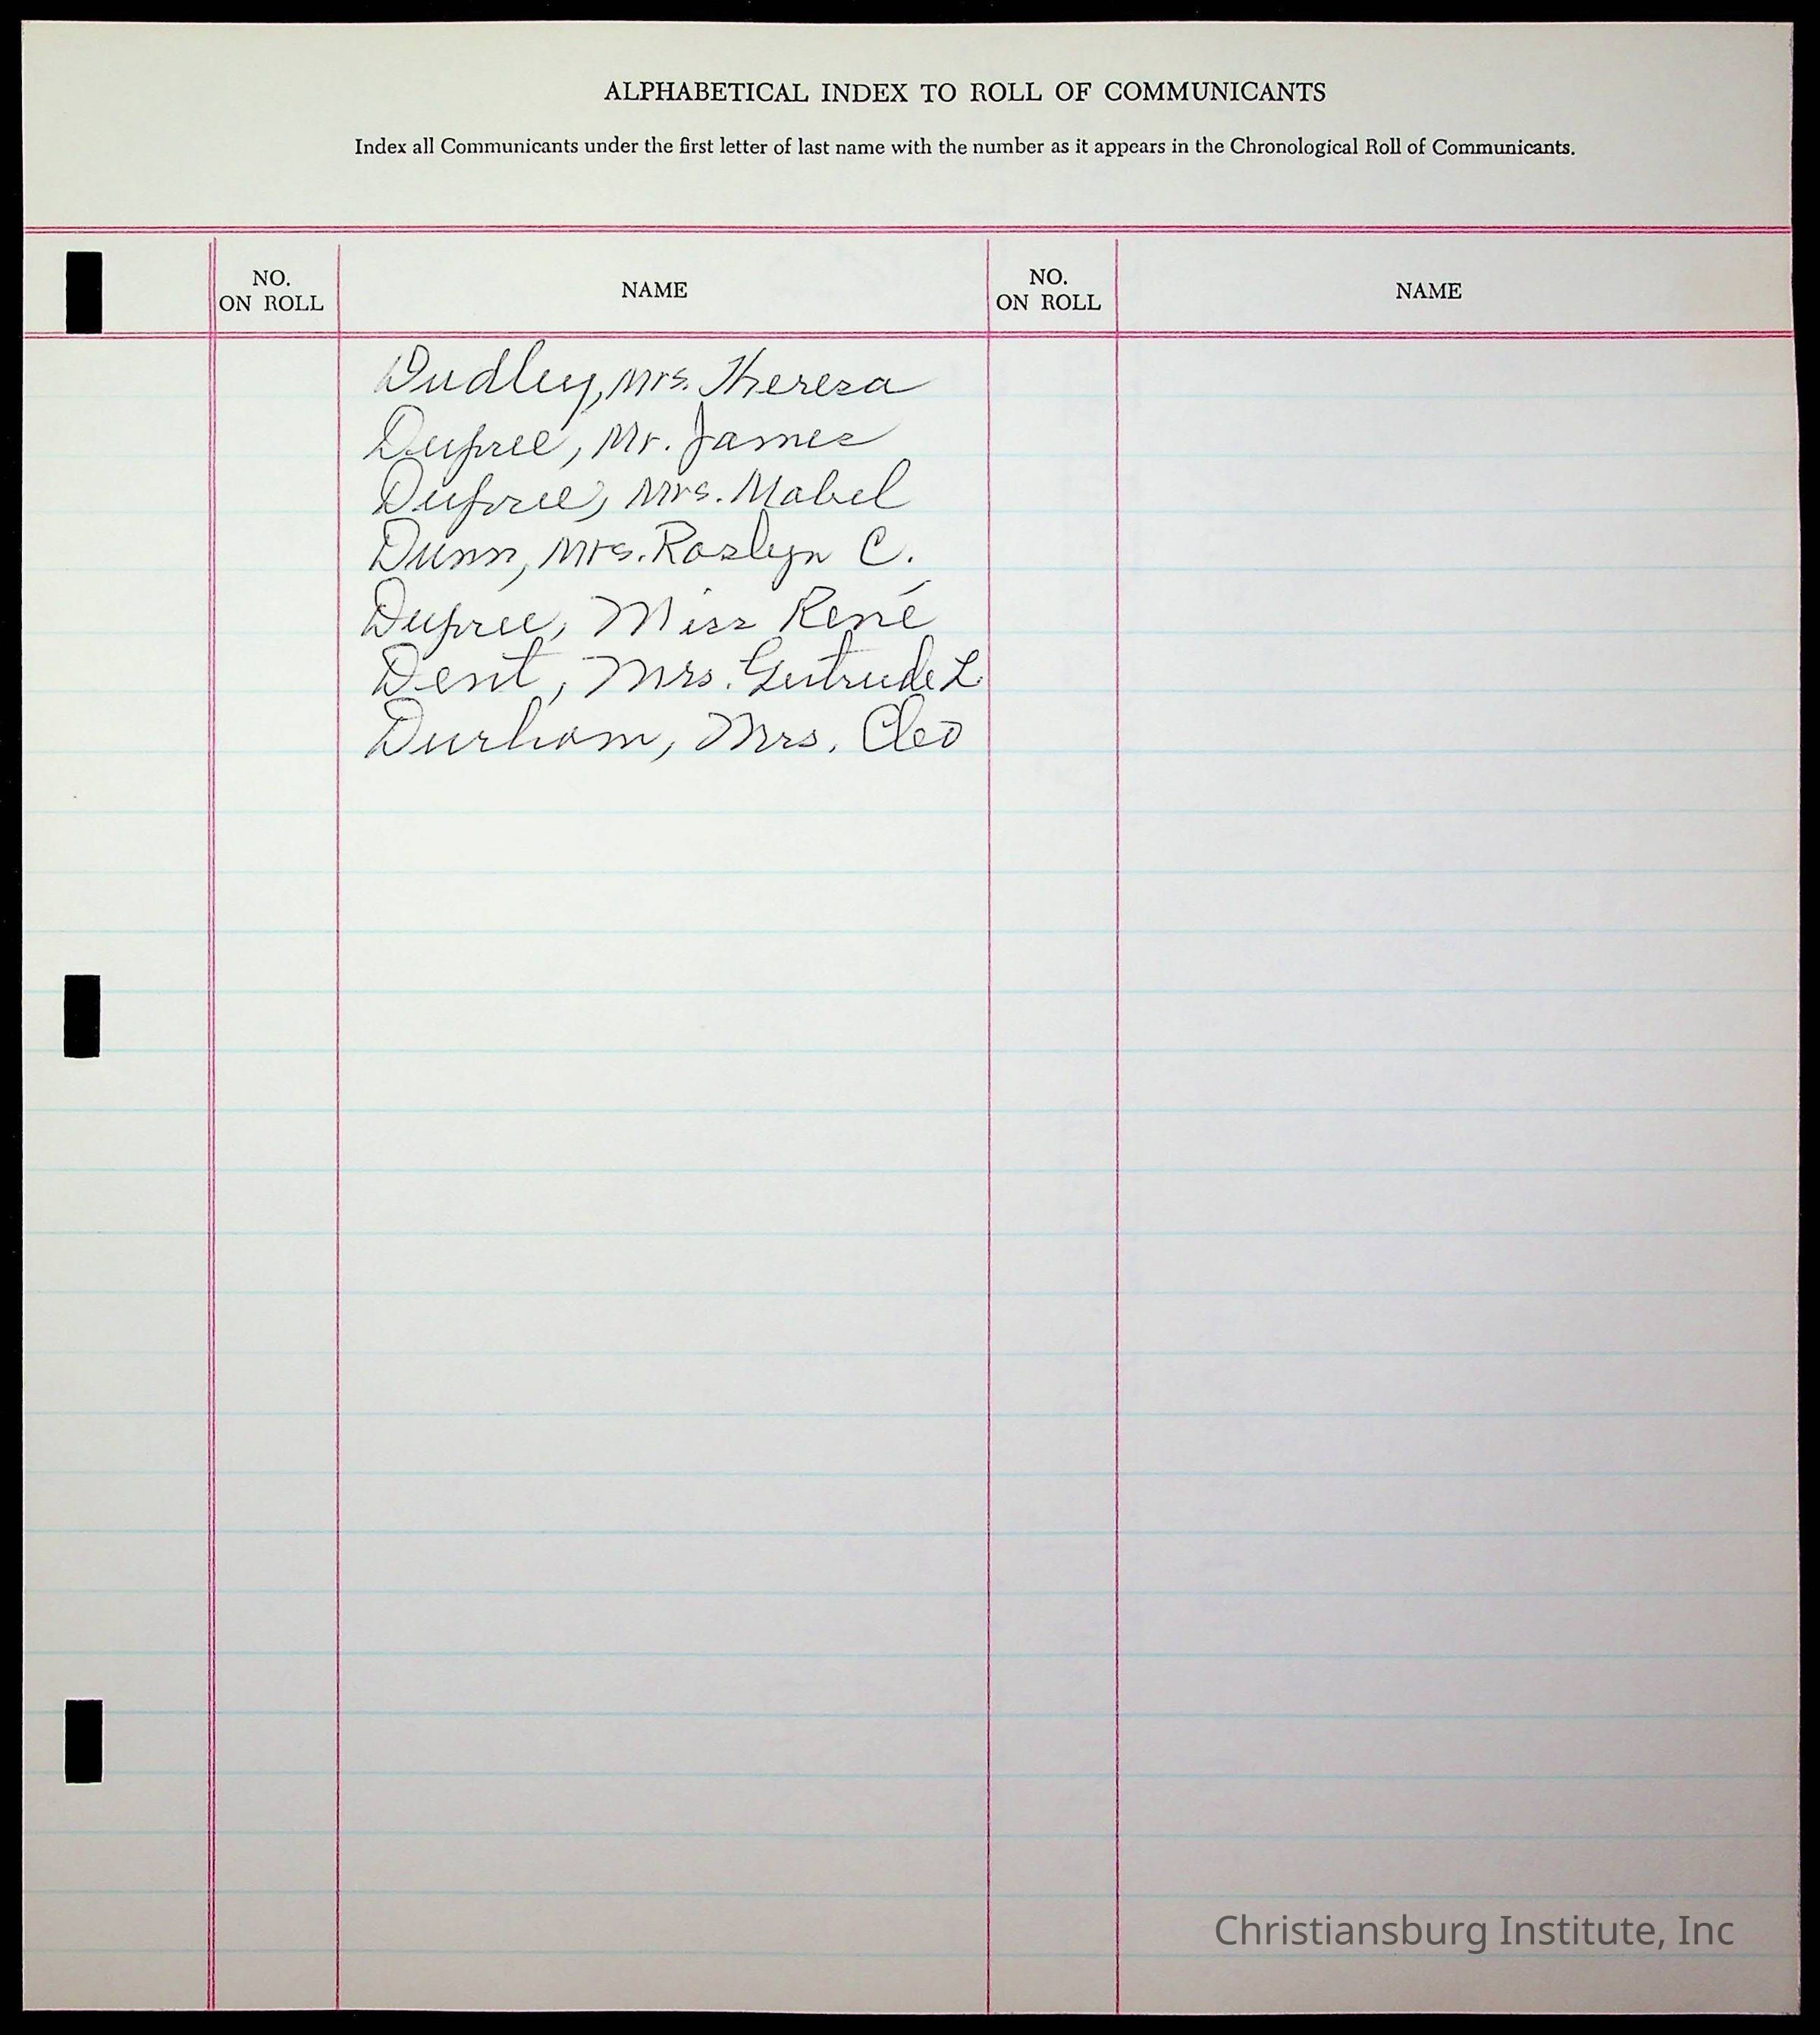 ALPHABETICAL INDEX TO ROLL OF COMMUNICANTS
Index all Communicants under the first letter of last name with the number as it appears in the Chronological Roll of Communicants.
NO. ON ROLL NAME NO. ON ROLL NAME
Dudley, Mrs. Theresa
Dupree, Mr. James
Dupree, Mrs. Mabel
Dunn, Mrs. Roslyn C.
Dupree, Miss René
Dent, Mrs. Gertrude L.
Durham, Mrs. Cleo
Christiansburg Institute, Inc